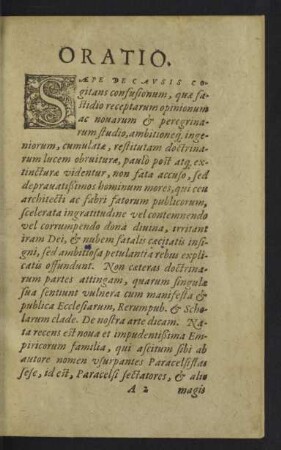 ORATIO.
SÆPE DE CAVSIS co-
gitans confusionum, quæ fa-
stidio receptarum opinionum
ac nouarum & peregrina-
rum studio, ambitioneq; inge-
niorum, cumulatæ, restitutam doctrina-
rum lucem obruituræ, paulò post atq; ex-
tincturæ videntur, non fata accuso, sed
deprauatißimos hominum mores, qui ceu
architecti ac fabri fatorum publicorum,
scelerata ingratitudine vel contemnendo
vel corrumpendo dona diuina, irritant
iram Dei, & nubem fatalis cæcitatis insi-
gni, sed ambitiosa petulantia rebus expli-
catis offundunt. Non cæteras doctrina-
rum partes attingam, quarum singulæ
sua sentiunt vulnera cum manifesta &
publica Ecclesiarum, Rerumpub. & Scho-
larum clade. De nostra arte dicam. Na-
ta recens est noua et impudentißima Em-
piricorum familia, qui ascitum sibi ab
autore nomen vsurpantes Paracelsistas
sese, id est, Paracelsi sectatores, & alio
A 2 magis